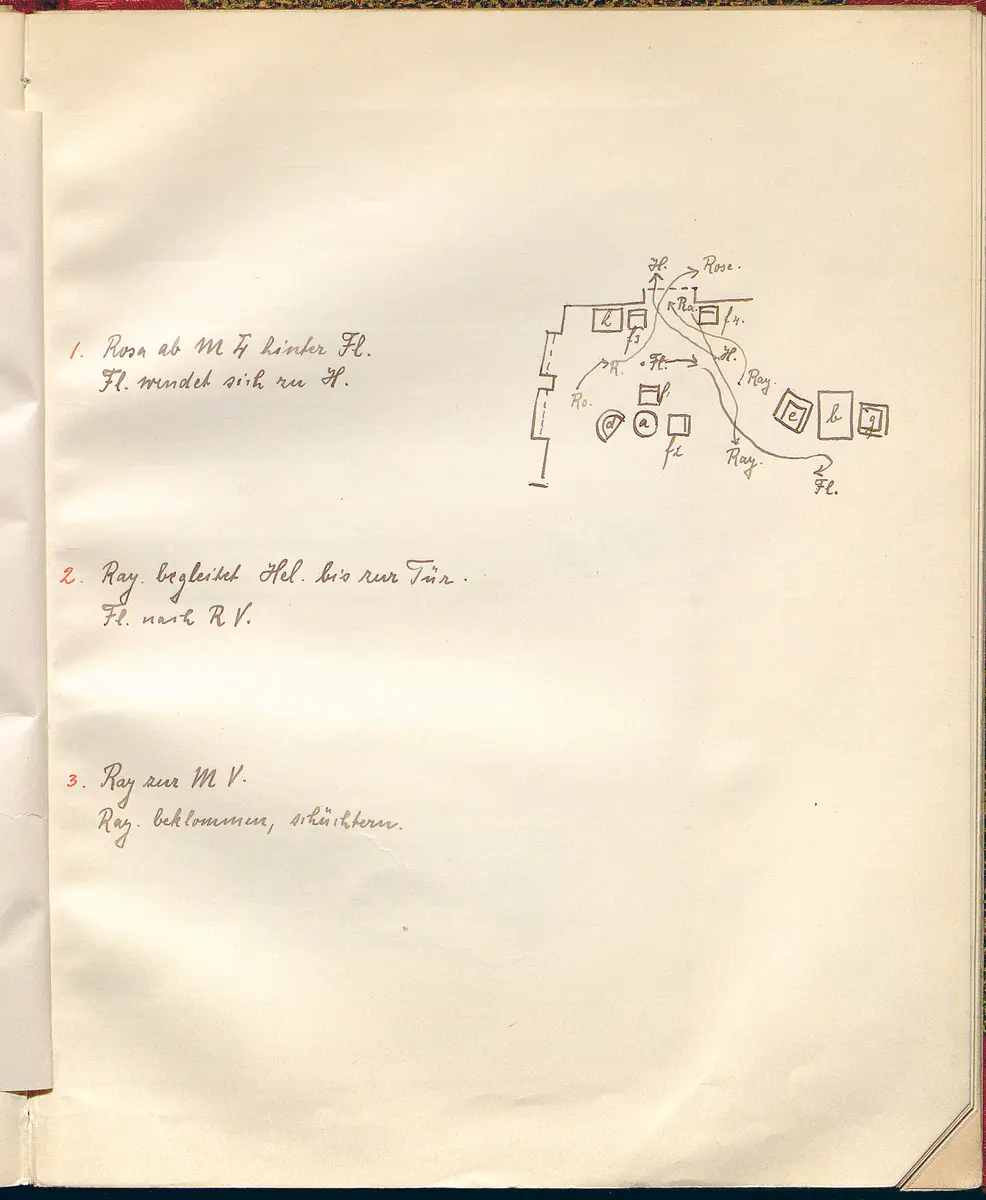 1. Rosa ab M hinter Fl.
Fl. wendet sich zu H.
H.
Rose.
k
f3
Ra.
f4.
Ro.
R.
Fl.
H.
Ray.
f1
d
a
f2
Ray.
e
b
g
Fl.
2. Ray. begleitet Hel. bis zur Tür.
Fl. nach R V.
3. Ray zur M V.
Ray. beklommen, schüchtern.